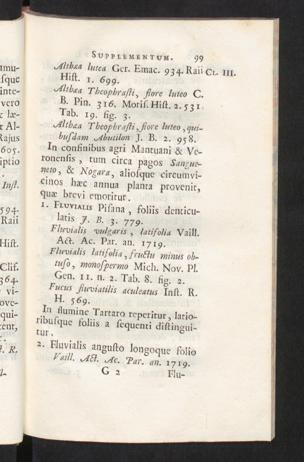 SUPPLEMENTUM. 99
Althæa lutea Ger. Emac. 934. Raii Cl. III.
Hist. 1. 699.
Althæa Theophrasti, flore luteo C.
B. Pin. 316. Moris. Hist. 2. 531.
Tab. 19. fig. 3.
Althæa Theophrasti, flore luteo, qui-
busdam Abutilon J. B. 2. 958.
In confinibus agri Mantuani & Ve-
ronensis, tum circa pagos Sangue-
neto, & Nogara, aliosque circumvi-
cinos hæc annua planta provenit,
quæ brevi emoritur.
1. FLUVIALIS Pisana, foliis denticu-
latis J. B. 3. 779.
Fluvialis vulgaris, latifolia Vaill.
Act. Ac. Par. an. 1719.
Fluvialis latifolia, fructu minus ob-
tuso, monospermo Mich. Nov. Pl.
Gen. 11. n. 2. Tab. 8. fig. 2.
Fucus fluviatilis aculeatus Inst. R.
H. 569.
In flumine Tartaro reperitur, latio-
ribusque foliis a sequenti distingui-
tur.
2. Fluvialis angusto longoque folio
Vaill. Act. Ac. Par. an. 1719.
G 2 Flu-